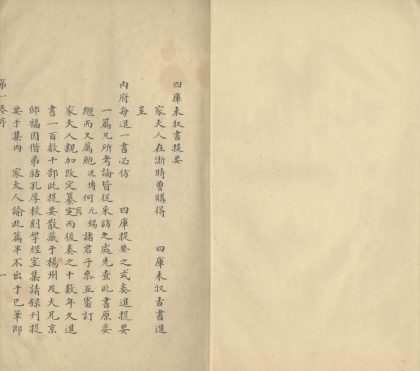 四庫未收書提要
家大人在浙時曾購得　四庫未收古書進
呈
內府每進一書必仿　四庫提要之式奏進提要
一篇凡所考論皆從采訪之處先查此書原委
繼而又屬鮑廷博何元錫諸君子參互審訂
家大人親加改定纂寫而後奏之十數年久進
書一百數十部此提要散藏于揚州及大兄京
邸福因偕弟祜孔厚校刻揅經室集請錄刊提
要于集內　家大人諭此篇半不出于己筆即